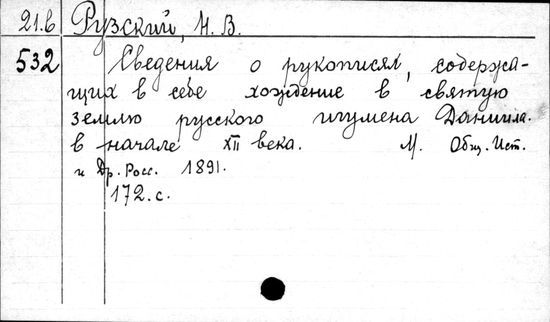 21.b Рузский, Н. В.
532 Сведения о рукописях, содержа-
щих в себе хождение в святую
землю русского игумена Даниила.
в начале XII века. М. Общ. Ист.
и Др. Росс. 1891.
172. с.